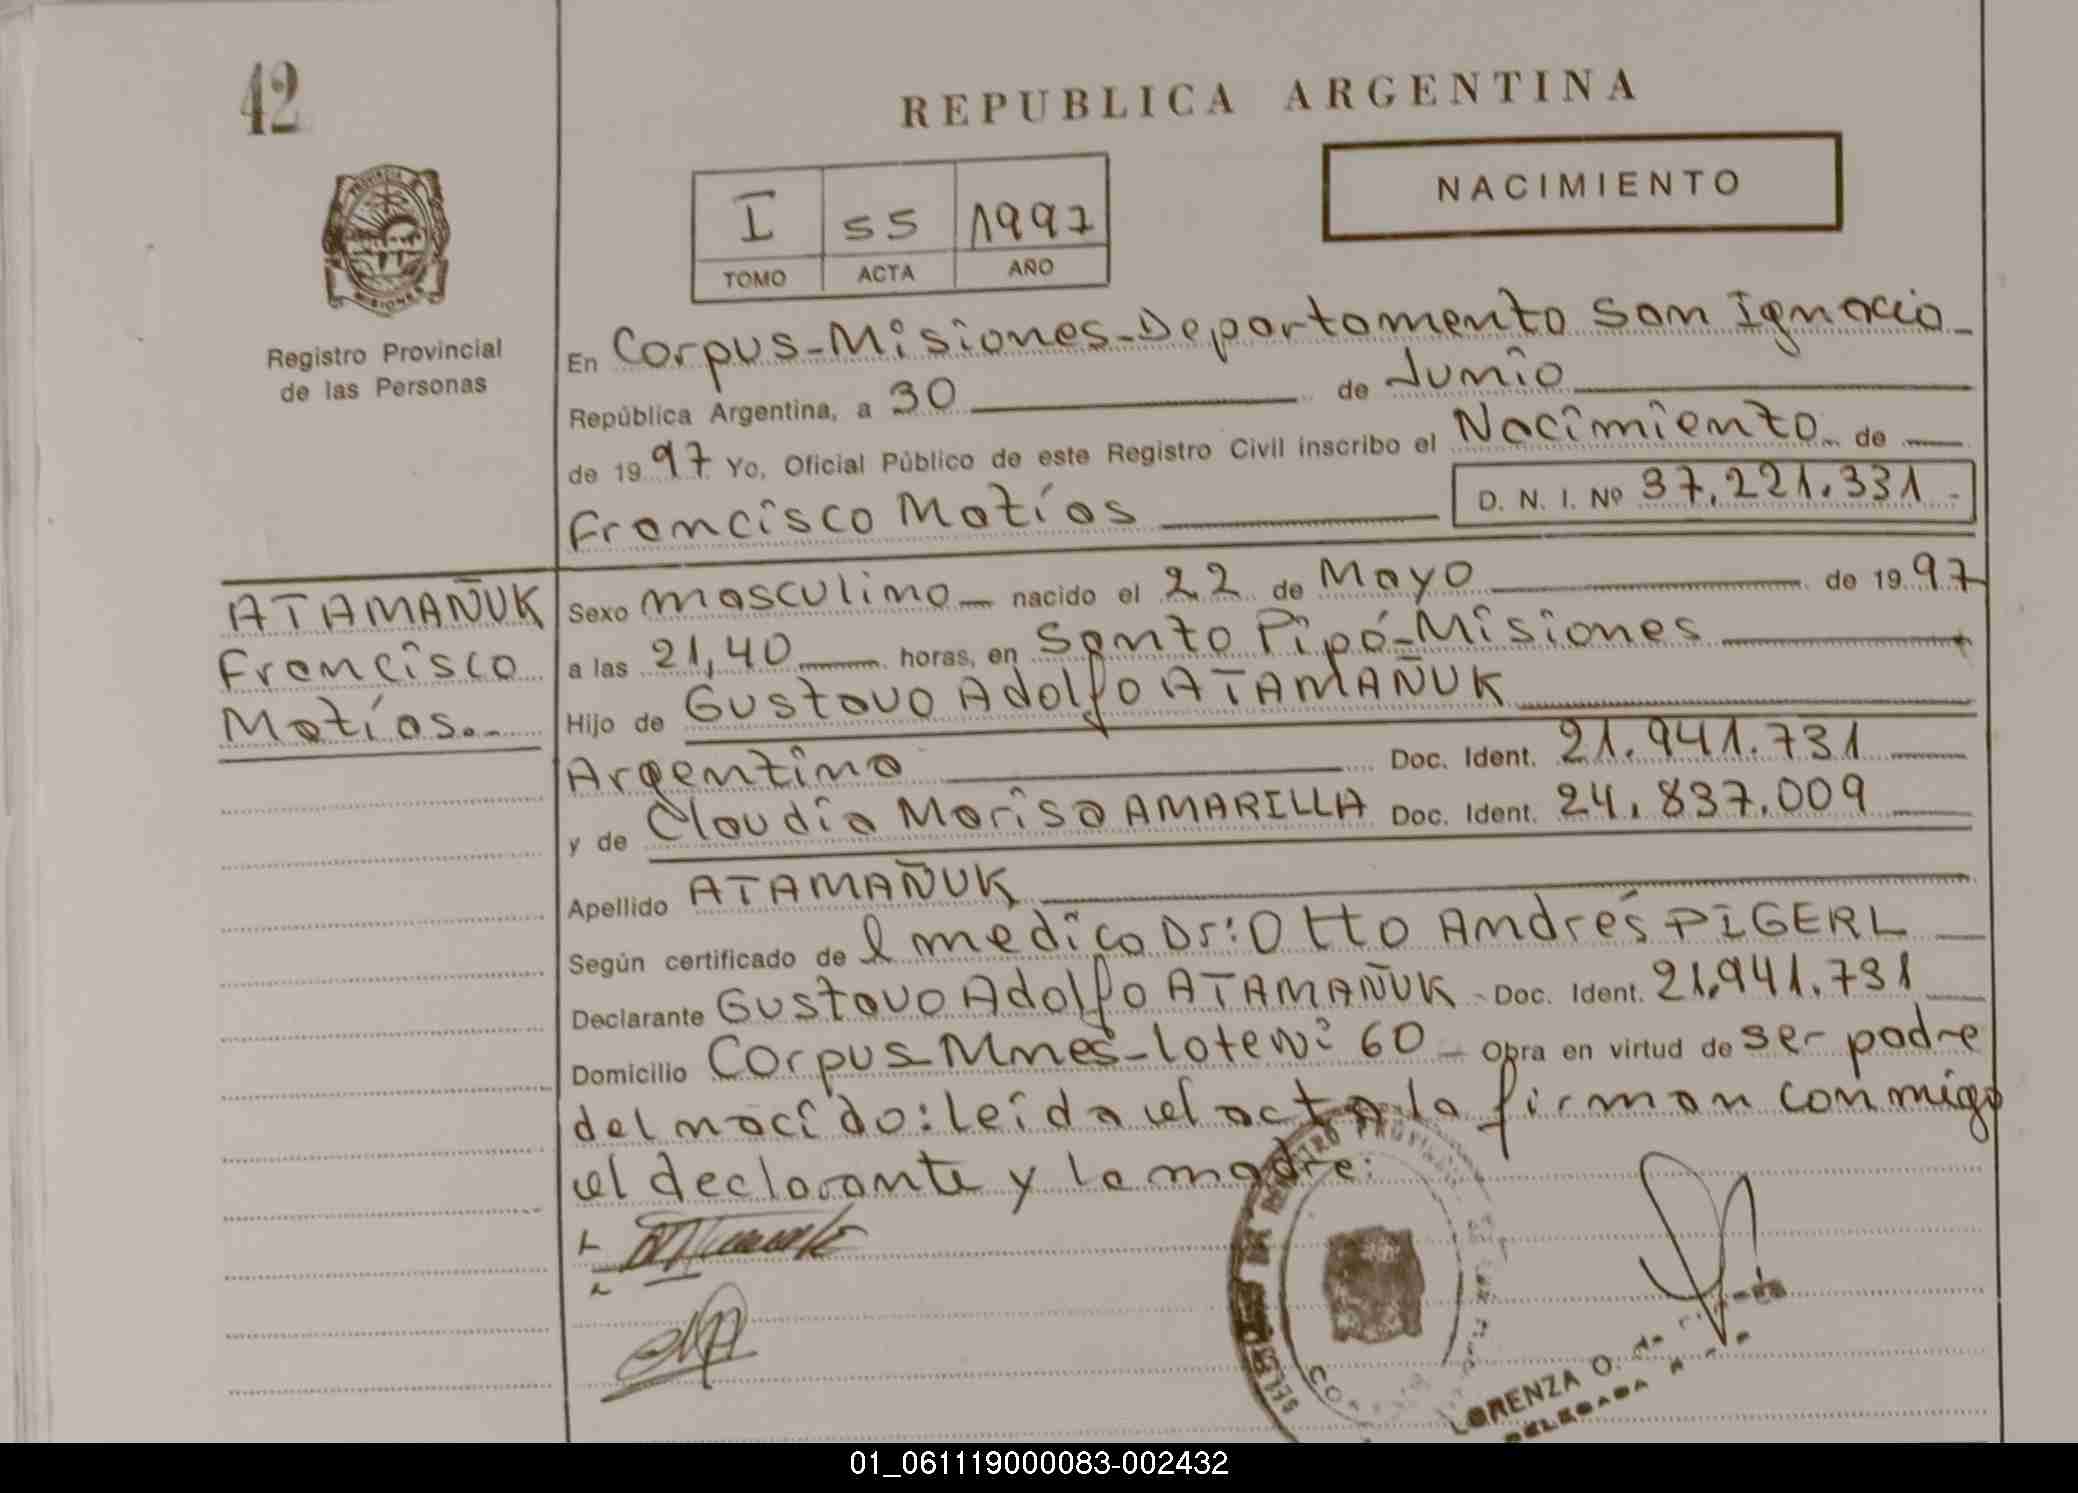 42
REPUBLICA ARGENTINA
NACIMIENTO
I 55 1997
TOMO ACTA AÑO
PROVINCIA
MISIONES
Registro Provincial
de las Personas
En Corpus-Misiones-Departamento San Ignacio
República Argentina, a 30 de Junio
de 1997 Yo, Oficial Público de este Registro Civil inscribo el Nacimiento de
Francisco Matías D. N. I. Nº 37.221.331
ATAMAÑUK
Francisco
Matías.-
Sexo masculino nacido el 22 de Mayo de 1997
a las 21,40 horas, en Santo Pipó-Misiones
Hijo de Gustavo Adolfo ATAMAÑUK
Argentino Doc. Ident. 21.941.731
y de Claudia Marisa AMARILLA Doc. Ident. 24.837.009
Apellido ATAMAÑUK
Según certificado de l medico Dr: Otto Andrés PIGERL
Declarante Gustavo Adolfo ATAMAÑUK - Doc. Ident. 21.941.731
Domicilio Corpus-Mnes-lote Nº 60 - Obra en virtud de ser padre
del nacido: leida el acta la firman conmigo
el declarante y la madre:
LORENZA O. de
DELEGADA
01_061119000083-002432